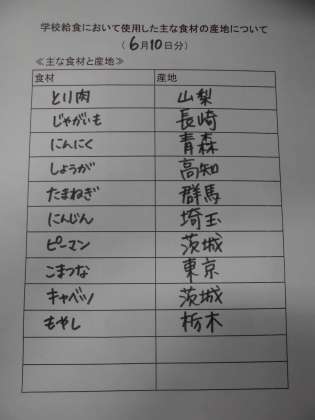 学校給食において使用した主な食材の産地について
（6月10日分）
≪主な食材と産地≫
食材 産地
とり肉 山梨
じゃがいも 長崎
にんにく 青森
しょうが 高知
たまねぎ 群馬
にんじん 埼玉
ピーマン 茨城
こまつな 東京
キャベツ 茨城
もやし 栃木